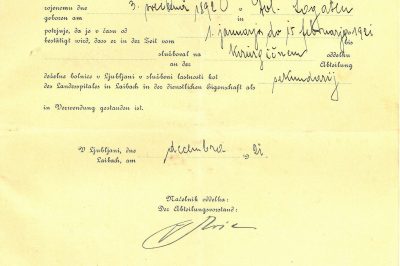 rojenemu dne 3. 1892 v Dol. Logatcu
geboren am in
potrjuje, da je v času od 1. januarja do 15 februarja 1921
bestätigt wird, dass er in der Zeit vom bis
služboval na Kirurgičnem oddelku
an der Abteilung
deželne bolnice v Ljubljani v službeni lastnosti kot
des Landesspitales in Laibach in der dienstlichen Eigenschaft als sekundarij
in Verwendung gestanden ist.
V Ljubljani, dne decembra 1921.
Laibach, am
Načelnik oddelka:
Der Abteilungsvorstand: